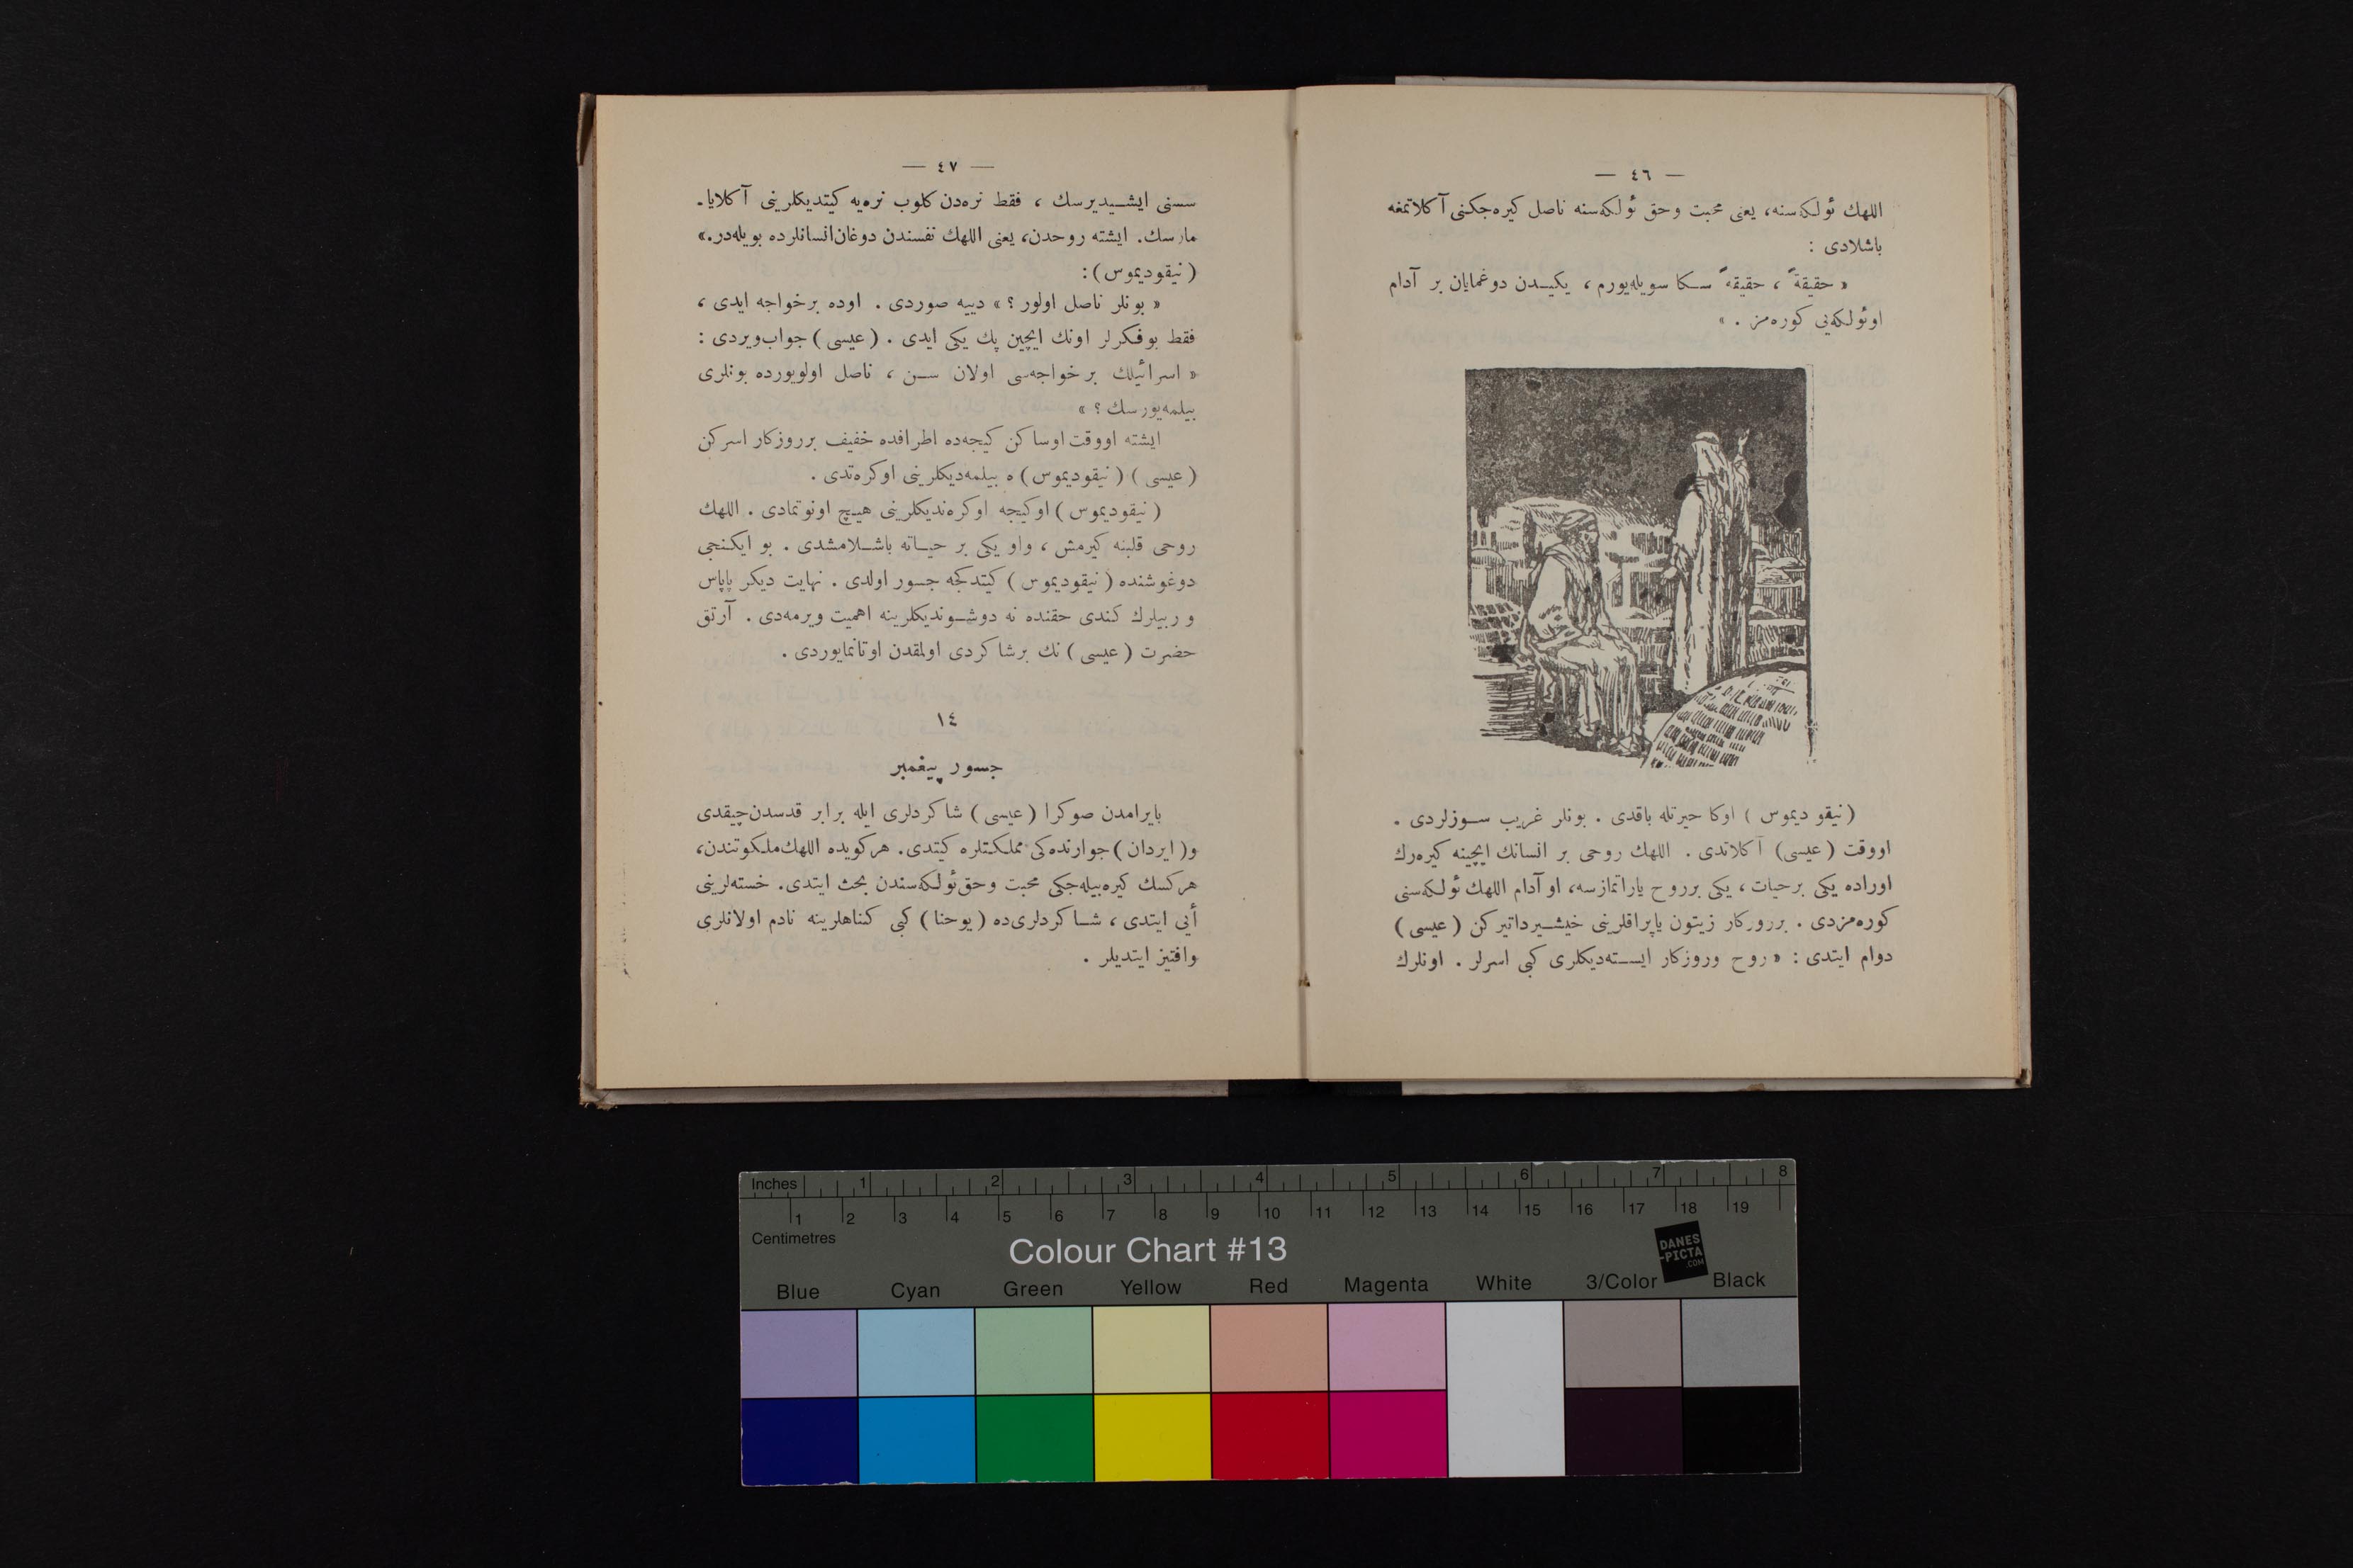 — ٤٦ —
اللهك ئولكه‌سنه، يعنی محبت وحق ئولكه‌سنه ناصل كيره‌جكنی آكلاتمغه
باشلادی :
« حقيقةً ، حقيقةً سكا سويله‌يورم ، يكيدن دوغمايان بر آدام
اوئولكه‌يی كوره‌مز . »
(نيقو ديموس ) اوكا حيرتله باقدی . بونلر غريب سوزلردی .
اووقت (عيسی) آكلاتدی . اللهك روحی بر انسانك ايچينه كيره‌رك
اوراده يكی برحيات ، يكی برروح ياراتمازسه، او آدام اللهك ئولكه‌سنی
كوره‌مزدی . برروزكار زيتون ياپراقلرينی خيشيرداتيركن (عيسی)
دوام ايتدی : « روح وروزكار ايسته‌ديكلری كبی اسرلر . اونلرك
— ٤٧ —
سسنی ايشيديرسك ، فقط نره‌دن كلوب نره‌يه كيتديكلرينی آكلايا-
مازسك. ايشته روحدن، يعنی اللهك نفسندن دوغان‌انسانلرده بويله‌در.»
(نيقوديموس) :
« بونلر ناصل اولور ؟ » دييه صوردی . اوده برخواجه ايدی ،
فقط بوفكرلر اونك ايچين پك يكی ايدی . (عيسی) جواب‌ويردی :
« اسرائيلك برخواجه‌سی اولان سن ، ناصل اولويورده بونلری
بيلمه‌يورسك ؟ »
ايشته اووقت اوساكن كيجه‌ده اطرافده خفيف برروزكار اسركن
(عيسی) (نيقوديموس) ه بيلمه‌ديكلرينی اوكره‌تدی .
(نيقوديموس) اوكيجه اوكره‌نديكلرينی هيچ اونوتمادی . اللهك
روحی قلبنه كيرمش ، واو يكی بر حياته باشلامشدی . بو ايكنجی
دوغوشنده (نيقوديموس) كيتدكجه جسور اولدی . نهايت ديكر پاپاس
و ربيلرك كندی حقنده نه دوشونديكلرينه اهميت ويرمه‌دی . آرتق
حضرت (عيسی) نك برشاكردی اولمقدن اوتانمايوردی .
١٤
جسور پيغمبر
بايرامدن صوكرا (عيسی) شاكردلری ايله برابر قدسدن‌چيقدی
و(ايردان) جوارنده‌كی مملكتلره كيتدی. هركويده اللهك‌ملكوتندن،
هركسك كيره‌بيله‌جكی محبت وحق‌ئولكه‌سندن بحث ايتدی. خسته‌لرينی
أيی ايتدی ، شاكردلری‌ده (يوحنا) كبی كناهلرينه نادم اولانلری
وافتيز ايتديلر .
Inches 1 2 3 4 5 6 7 8
1 2 3 4 5 6 7 8 9 10 11 12 13 14 15 16 17 18 19
Centimetres
Colour Chart #13
DANES
-PICTA
.COM
Blue Cyan Green Yellow Red Magenta White 3/Color Black